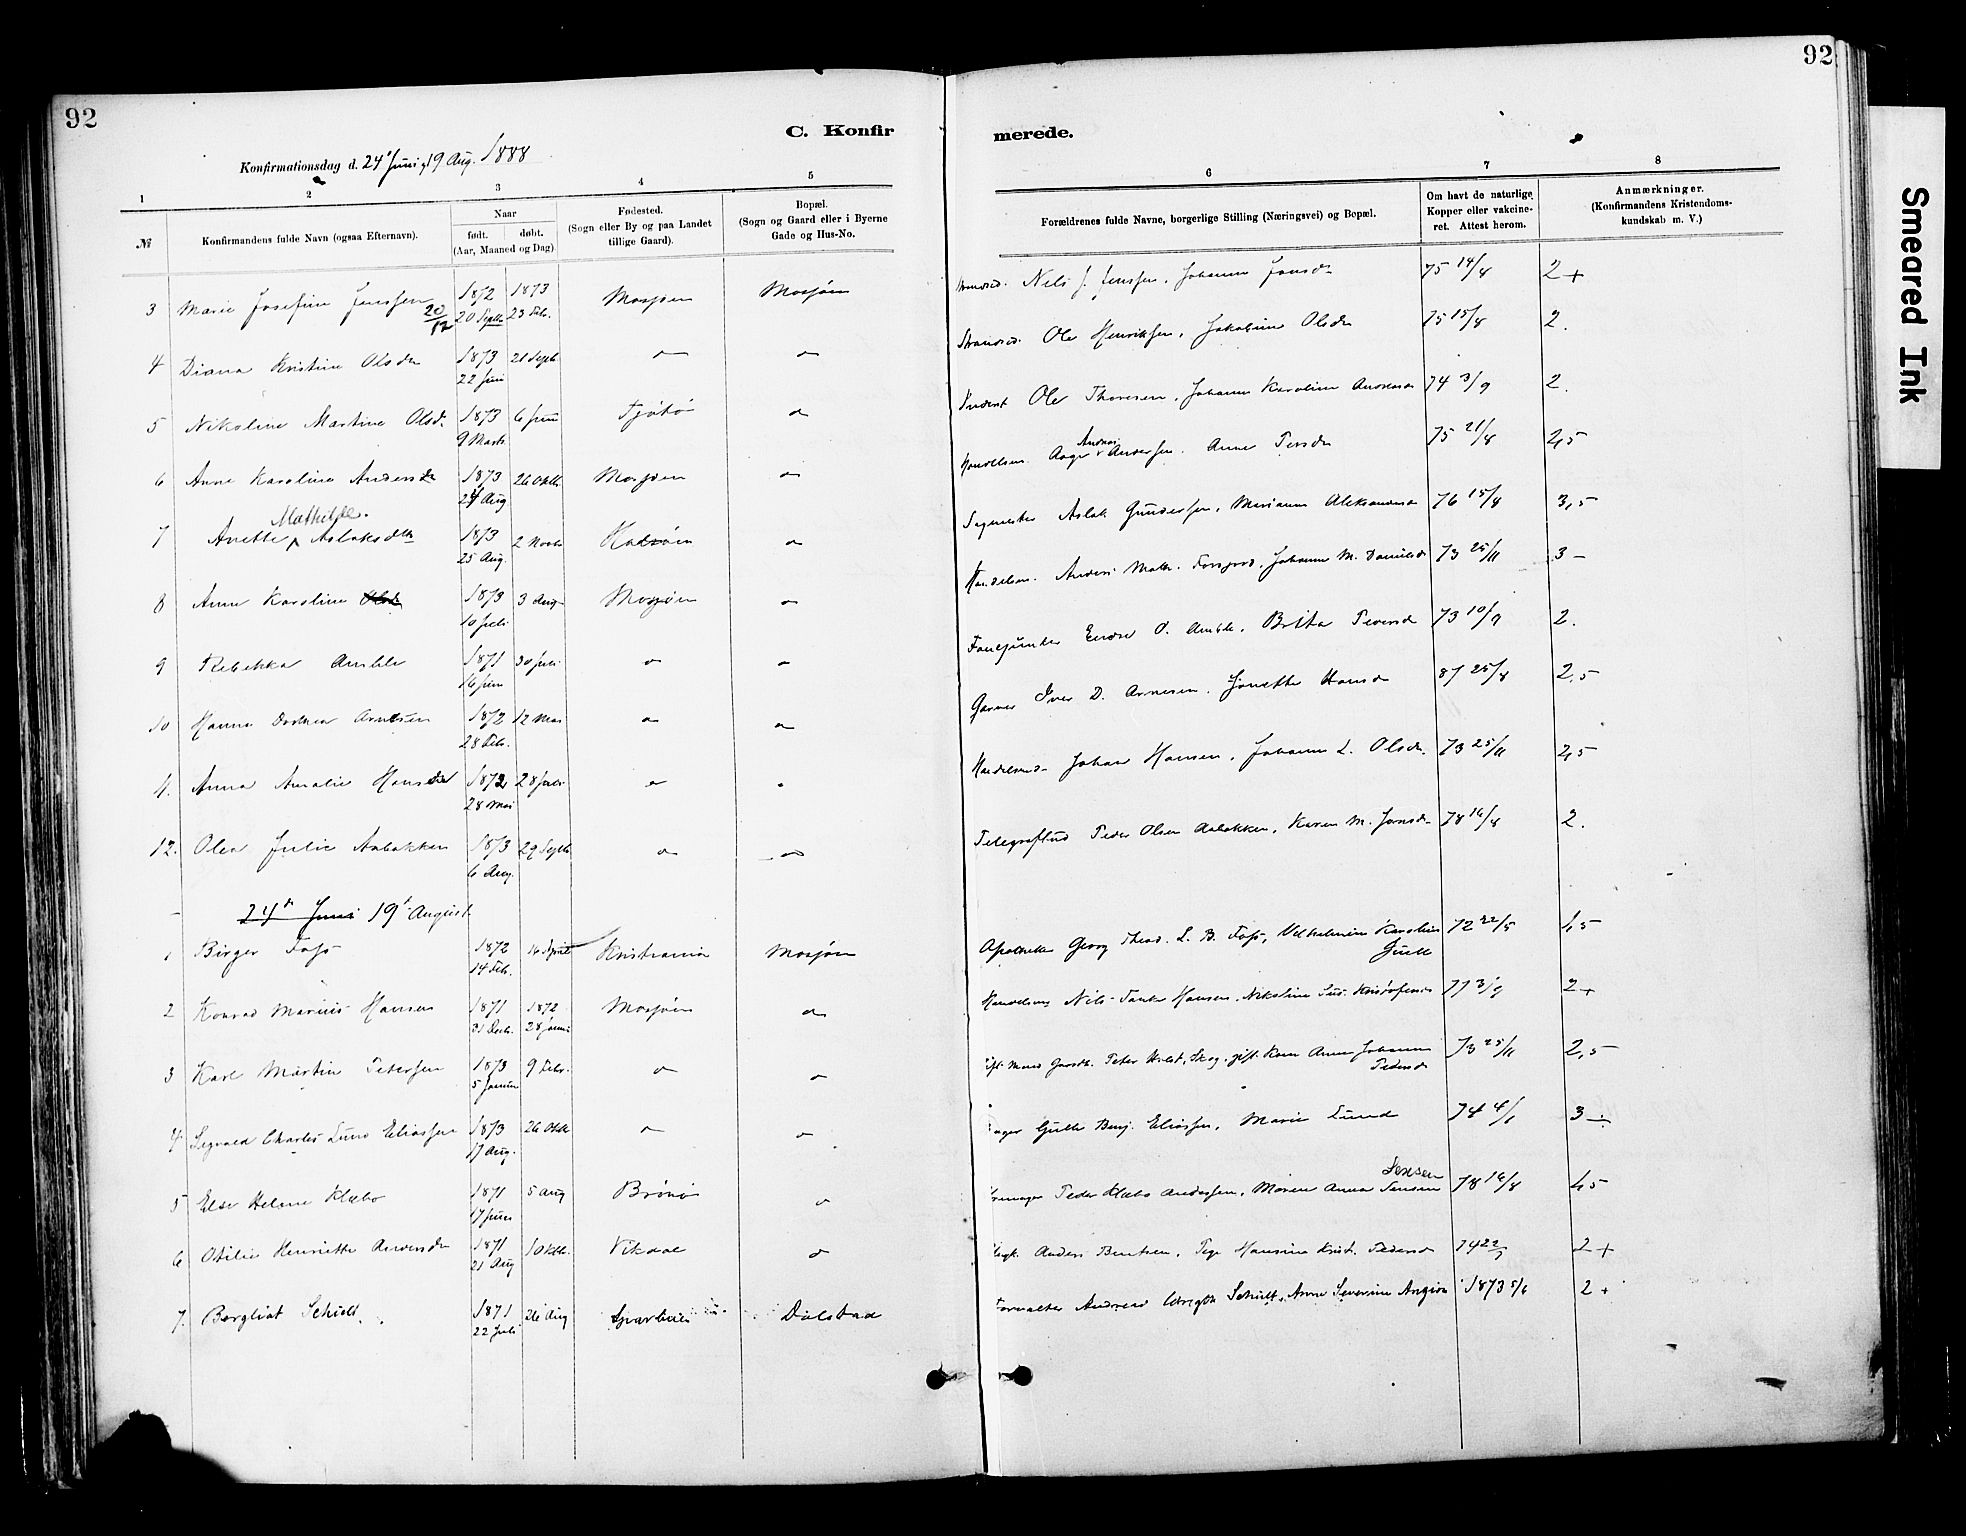 92
92
C. Konfir
merede.
Konfirmationsdag d. 24' Juni, 19 Aug. 1888
1 2 3 4 5 6 7 8
№
Konfirmandens fulde Navn (ogsaa Efternavn).
Naar
født. døbt.
(Aar, Maaned og Dag).
Fødested.
(Sogn eller By og paa Landet
tillige Gaard).
Bopæl.
(Sogn og Gaard eller i Byerne
Gade og Hus-No.
Forældrenes fulde Navne, borgerlige Stilling (Næringsvei) og Bopæl.
Om havt de naturlige
Kopper eller vakcine-
ret. Attest herom.
Anmærkninger.
(Konfirmandens Kristendoms-
kundskab m. V.)
3 Marie Josefine Jenssen 20/12 1872 20 Septb. 1873 23 Feb. Mosjøen Mosjøen Nils J. Jenssen, Johanna Jonsd. 75 14/8 2+
4 Diana Kristine Olsdr 1873 22 Juni 21 Septb. Ole Henriksen, Jakobine Olsdr 75 15/8 2.
5 Nikoline Martine Olsd. 1873 9 Marts 6 Juni Tjøtø Ole Thoresen, Johanna Karoline Andersd 74 3/9 2.
6 Anne Karoline Andersdr 1873 24 Aug 26 Oktb. Mosjøen Aage Andreas Andersen, Anne Persdr 75 21/8 2,5
7 Anette Mathilde Aslaksdtr 1873 25 Aug. 2 Novb. Aslak Gundersen, Marianne Aleksandersd 76 15/8 3,5
8 Anne Karoline 1873 10 Juli 3 Aug Mosjøen Anders Math. Forsgrd, Johanna M. Danielsd 73 25/11 3-
9 Rebekka Amble 1871 16 Juni 30 Juli Endre O. Amble, Britha Iversd 73 10/9 2.
10 Hanna Dorthea Arntsen 1872 28 Feb. 12 Mai Garver Iver D. Arnesen, Jonette Hansd 87 25/8 2,5
11. Anna Amalie Hansdtr 1872 28 Mai 28 Juli Johan Hansen, Johanna L. Olsdr. 73 25/11 2,5
12. Olea Julie Aabakken 1873 6 Aug. 29 Septb. Peder Olsen Aabakken, Karen M. Jonsd. 78 16/8 2.
24de Juni 19' August
1 Birger Foss 1872 14 Feb. 14 April Kristiania Mosjøen Apotheker Georg Thead. L. B. Foss, Vilhelmine Karoline Juell 72 22/5 1,5
2 Konrad Marius Hansen 1871 31 Decb. 1872 28 Januar Mosjøen Nils Tanke Hansen, Nikoline Sus. Kristofersd 77 3/9 2+
3 Karl Martin Petersen 1873 5 Januar 9 Febr. Peter Holst, Skog, gift. Kone Anne Johanna Pedersd 73 25/11 2,5
4 Sigvald Charles Lund Eliassen 1873 17 Aug. 26 Oktb. Benj. Eliassen, Marie Lund 74 4/1 3
5 Else Helene Klæbo 1871 17 Juni 5 Aug Brønø Peder Klæbo Andersen, Maren Anna Jensen Jensen 78 16/8 1,5
6 Otilie Henriette Andersdr 1871 21 Aug 1 Oktb. Vikdal Anders Bentsen, Pige Hansine Krist. Pedersd 74 22/9 2+
7. Bergliot Schult 1871 22 Juli 26 Aug Dolstad Forvalter Andreas Schult, Anne Severine Angion 1873 5/6 2+
Smeared Ink